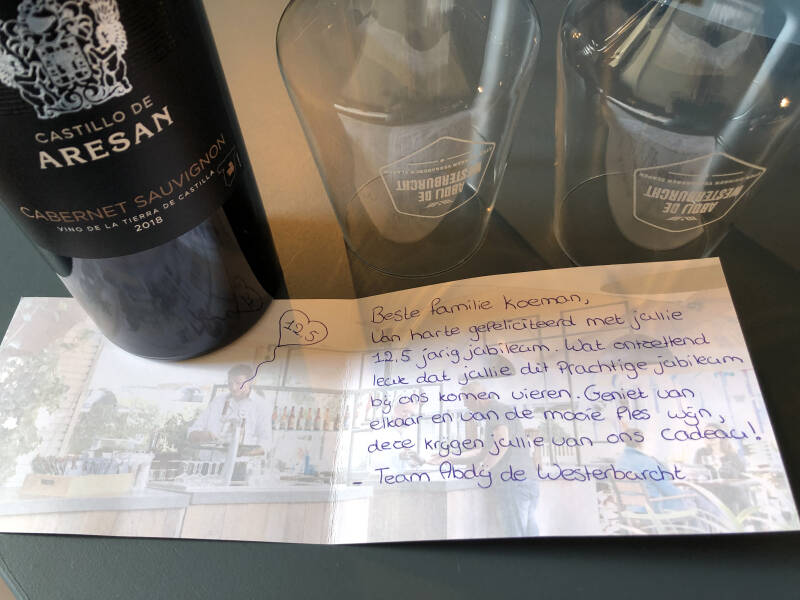 CASTILLO DE
ARESAN
CABERNET SAUVIGNON
VINO DE LA TIERRA DE CASTILLA
2018
ABDIJ DE
WESTERBURCHT
ABDIJ DE
WESTERBURCHT
12,5
Beste familie Koeman,
Van harte gefeliciteerd met jullie
12,5 jarig jubileum. Wat ontzettend
leuk dat jullie dit Prachtige jubileum
bij ons komen vieren. Geniet van
elkaar en van de mooie Fles wijn,
deze krijgen jullie van ons cadeau!
Team Abdij de Westerburcht